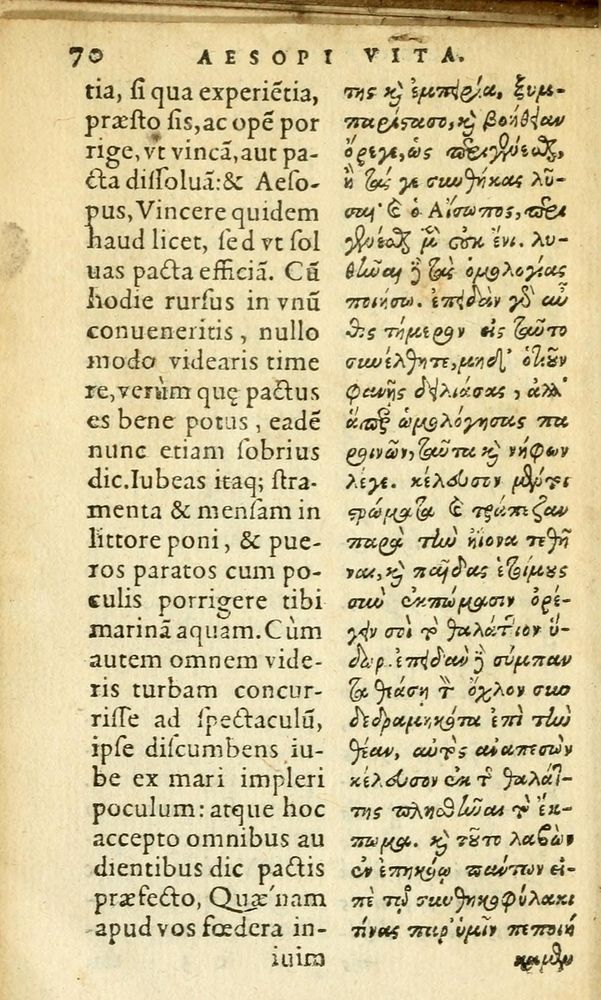 70 AESOPI VITA.
tia, si qua experiẽtia,
præsto sis, ac opẽ por
rige, vt vincã, aut pa-
cta dissoluã: & Aeso-
pus, Vincere quidem
haud licet, sed vt sol
uas pacta efficiã. Cũ
hodie rursus in vnũ
conueneritis, nullo
modo videaris time
re, verùm quę pactus
es bene potus, eadẽ
nunc etiam sobrius
dic. Iubeas itaq; stra-
menta & mensam in
littore poni, & pue-
ros paratos cum po-
culis porrigere tibi
marinã aquam. Cùm
autem omnem vide-
ris turbam concur-
risse ad spectaculũ,
ipse discumbens iu-
be ex mari impleri
poculum: atque hoc
accepto omnibus au
dientibus dic pactis
præfecto, Quæ'nam
apud vos fœdera in-
iuim
της καὶ ἐμπειρία, ξυμ-
παρίστασο, καὶ βοήθειαν
ὄρεγε, ὡς περιγενέσθαι,
ἢ τάς γε συνθήκας λῦ-
σαι· καὶ ὁ Αἴσωπος, περι
γενέσθαι μὲν οὐκ ἔνι. λυ-
θῆναι δὲ τὰς ὁμολογίας
ποιήσω. ἐπειδὰν γὰρ αὖ
θις τήμερον εἰς ταὐτὸ
συνέλθητε, μηδ' ὁτιοῦν
φανῇς δειλιάσας, ἀλλ'
ἅπερ ὡμολόγησας πα
ροινῶν, ταῦτα καὶ νήφων
λέγε. κέλευσον μέντοι
στρώματα καὶ τράπεζαν
παρὰ τὴν ἠϊόνα τεθῆ
ναι, καὶ παῖδας ἑτοίμους
σὺν ἐκπώμασιν ὀρέ-
γειν σοι τὸ θαλάττιον ὕ-
δωρ. ἐπειδὰν δὲ σύμπαν
τα θεάσῃ τὸν ὄχλον συν
δεδραμηκότα ἐπὶ τὴν
θέαν, αὐτὸς ἀναπεσὼν
κέλευσον ἐκ τῆς θαλάτ-
της πλησθῆναι τὸ ἔκ-
πωμα. καὶ τοῦτο λαβὼν
ἐν ἐπηκόῳ πάντων εἰ-
πὲ τῷ συνθηκοφύλακι
τίνας παρ' ὑμῖν πεποιή
καμεν